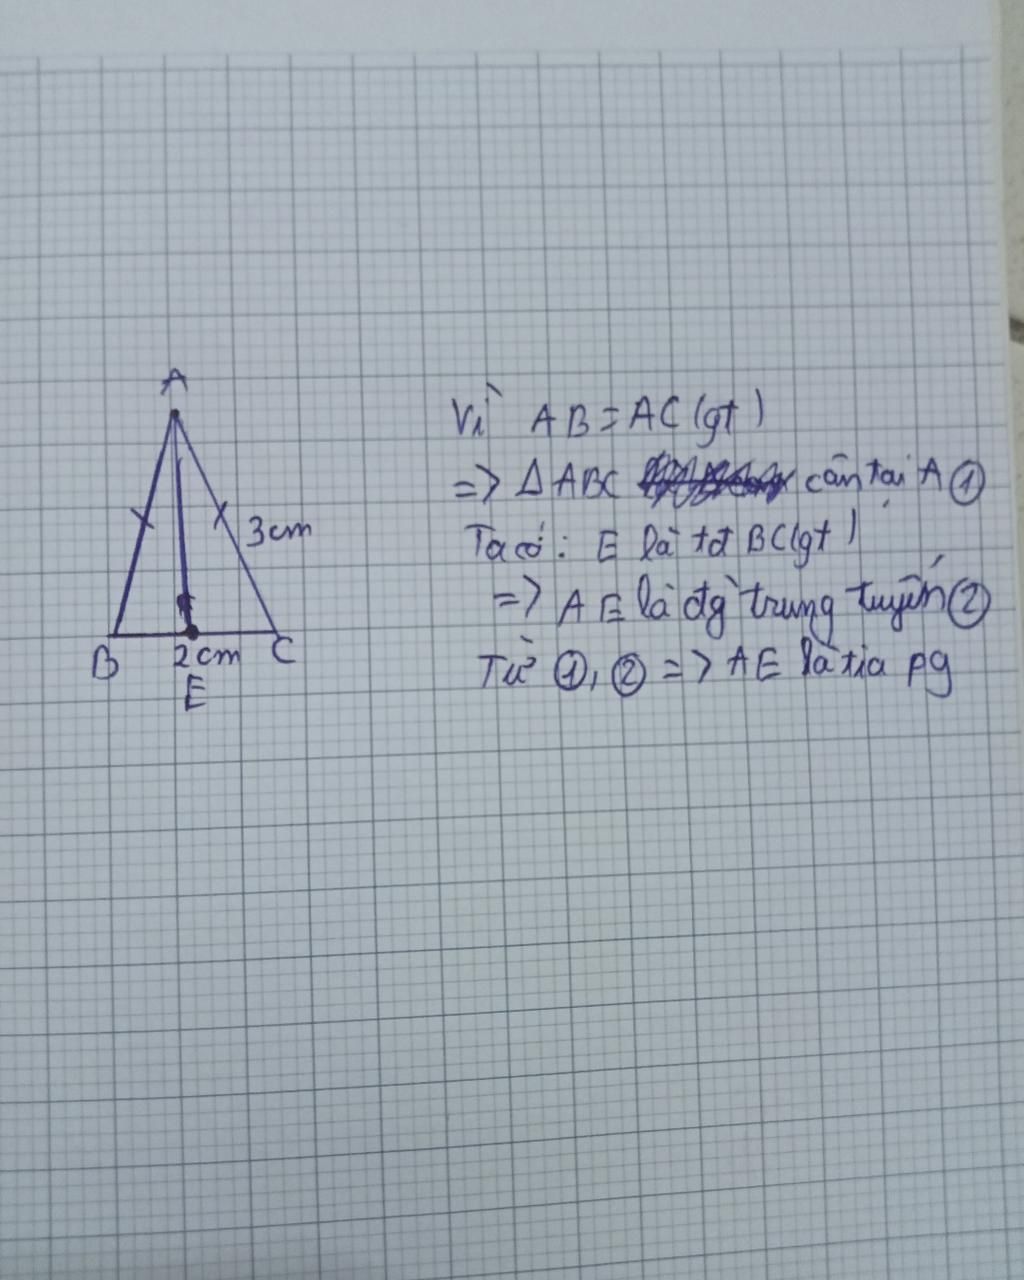 A
3cm
B 2cm C
E
Vì AB = AC (gt)
=> Δ ABC cân tại A ①
Ta có: E là tđ BC (gt)
=> AE là đg trung tuyến ②
Từ ①, ② => AE là tia pg